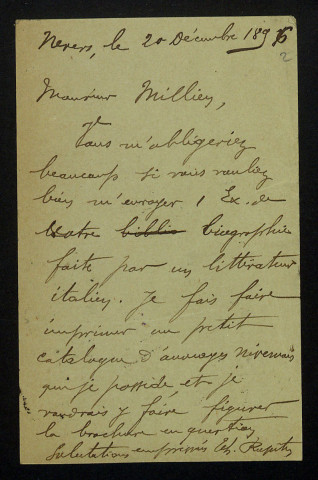 Nevers, le 20 Décembre 1895
2
Monsieur Millien,
Vous m'obligeriez
beaucoup si vous vouliez
bien m'envoyer 1 Ex. de
votre biblio biographie
faite par un littérateur
italien. Je fais faire
imprimer un petit
catalogue d'ouvrages nivernais
que je possède et je
voudrais y faire figurer
la brochure en question
Salutations empressés